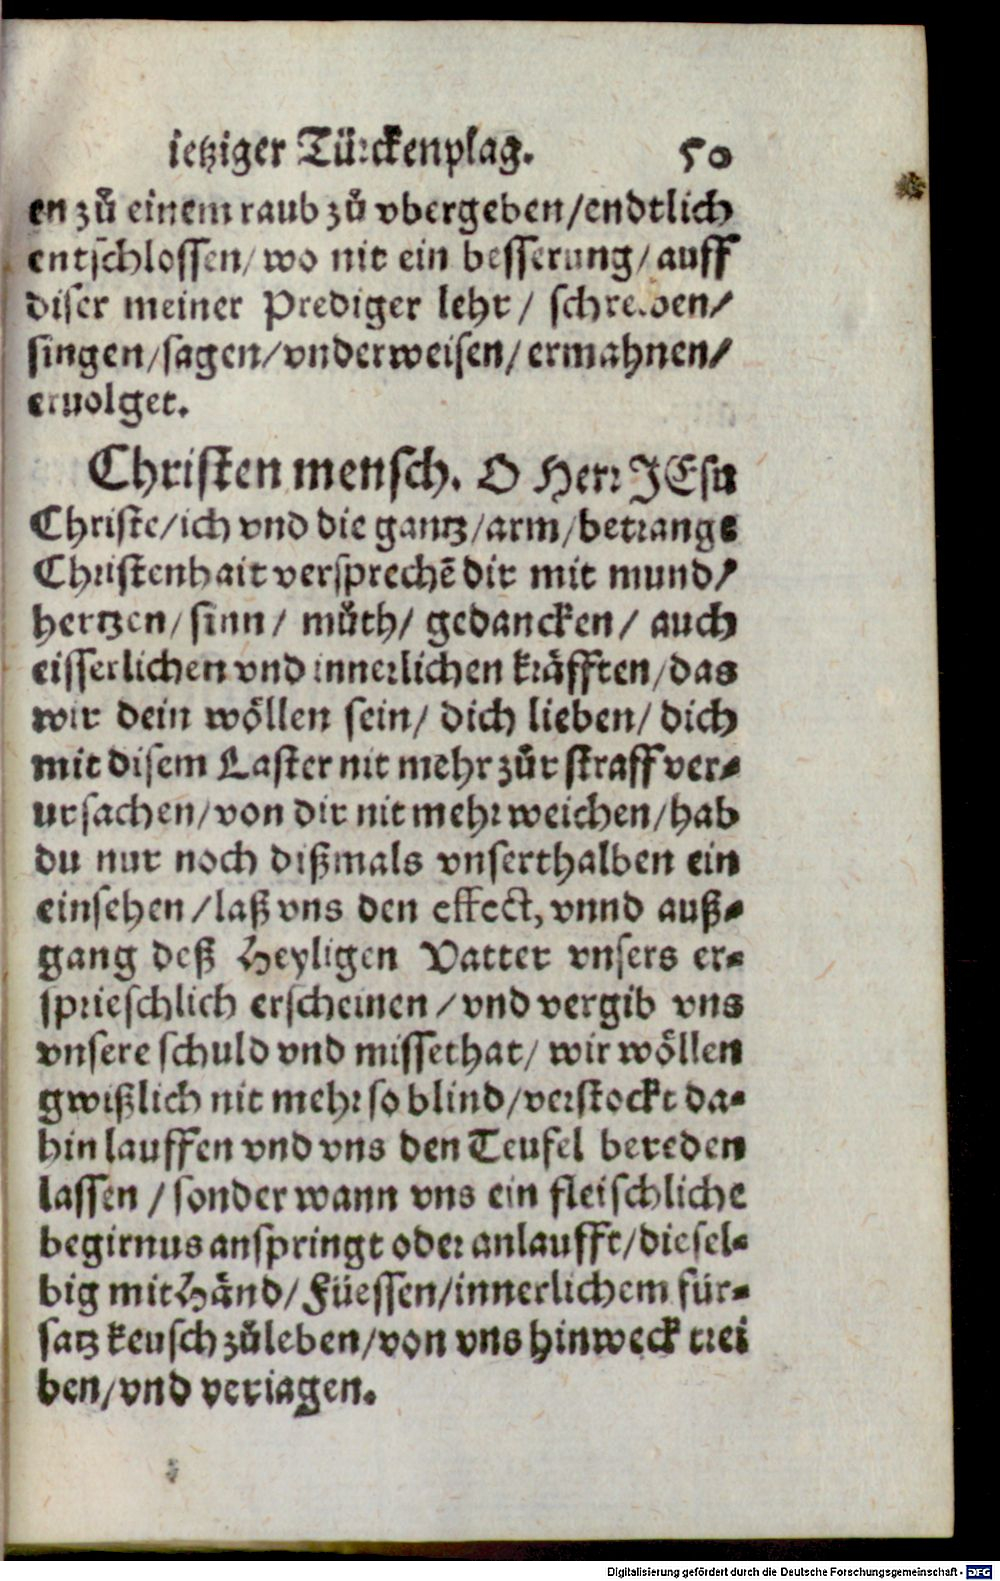 ietziger Türckenplag. 50
en zů einem raub zů vbergeben/endtlich
entschlossen/ wo nit ein besserung/ auff
diser meiner Prediger lehr/ schreiben/
singen/sagen/vnderweisen/ ermahnen/
eruolget.
Christen mensch. O Herr JEsu
Christe/ich vnd die gantz/arm/betrangt
Christenhait versprechē dir mit mund/
hertzen/ sinn/ můth/ gedancken/ auch
eisserlichen vnd innerlichen kräfften/das
wir dein wöllen sein/ dich lieben/ dich
mit disem Laster nit mehr zůr straff ver-
ursachen/von dir nit mehr weichen/hab
du nur noch dißmals vnserthalben ein
einsehen/laß vns den effect, vnnd auß-
gang deß Heyligen Vatter vnsers er-
sprieschlich erscheinen/vnd vergib vns
vnsere schuld vnd missethat/ wir wöllen
gwißlich nit mehr so blind/verstockt da-
hin lauffen vnd vns den Teufel bereden
lassen/sonder wann vns ein fleischliche
begirnus anspringt oder anlaufft/diesel-
big mit Händ/ Füessen/innerlichem für-
satz keusch zůleben/von vns hinweck trei
ben/vnd veriagen.
Digitalisierung gefördert durch die Deutsche Forschungsgemeinschaft - DFG